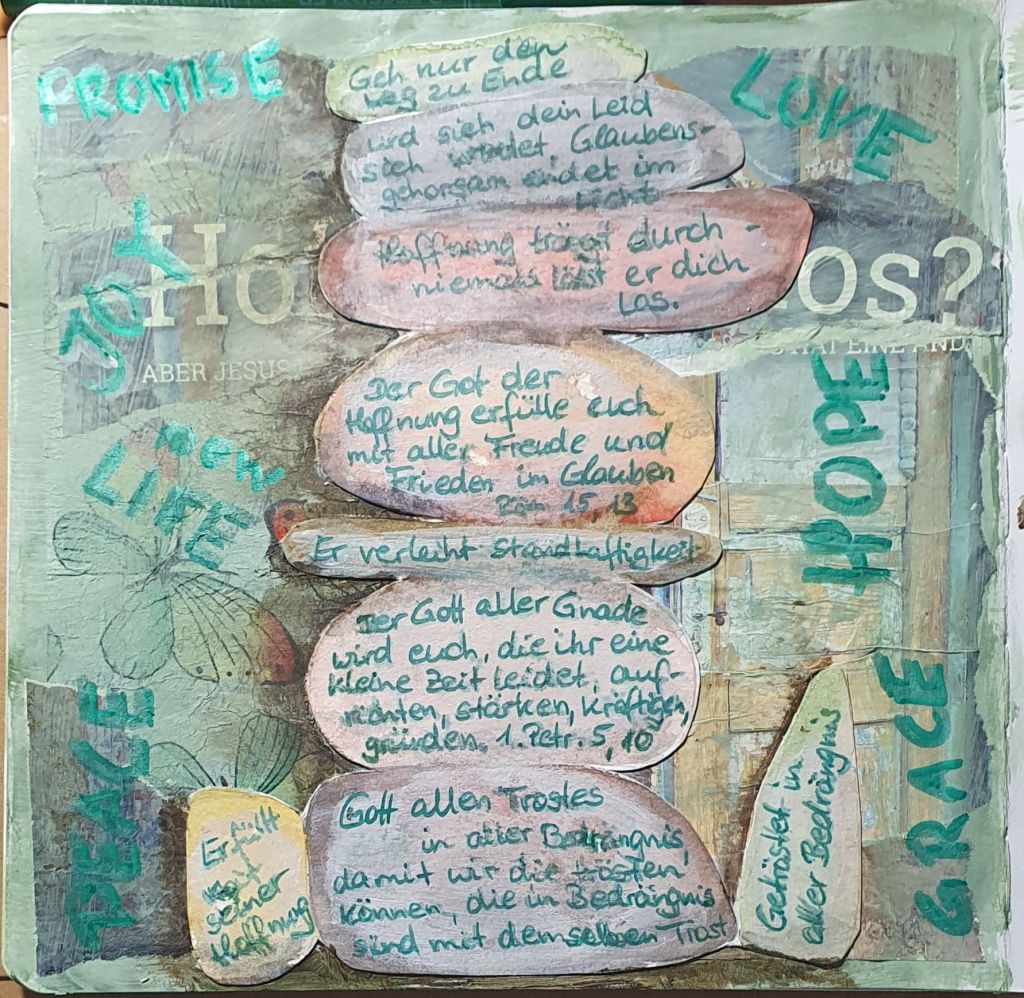 PROMISE
LOVE
JOY
new
LIFE
PEACE
HOPE
GRACE
Geh nur den
weg zu Ende
und sieh dein Leid
sich wendet Glaubens-
gehorsam endet im
Licht
Hoffnung trägt durch -
niemals lässt er dich
Los.
Ho
os?
ABER JESUS
EINE AND
Der Got der
Hoffnung erfülle euch
mit aller Freude und
Frieden im Glauben
Röm 15, 13
Er verleiht Standhaftigkeit
Der Gott aller Gnade
wird euch, die ihr eine
kleine Zeit leidet, auf-
richten, stärken, kräftigen,
gründen. 1. Petr. 5, 10
Gott allen Trostes
in aller Bedrängnis,
damit wir die trösten
können, die in Bedrängnis
sind mit demselben Trost
Erfüllt
mit
seiner
Hoffnung
Getröstet in
aller Bedrängnis